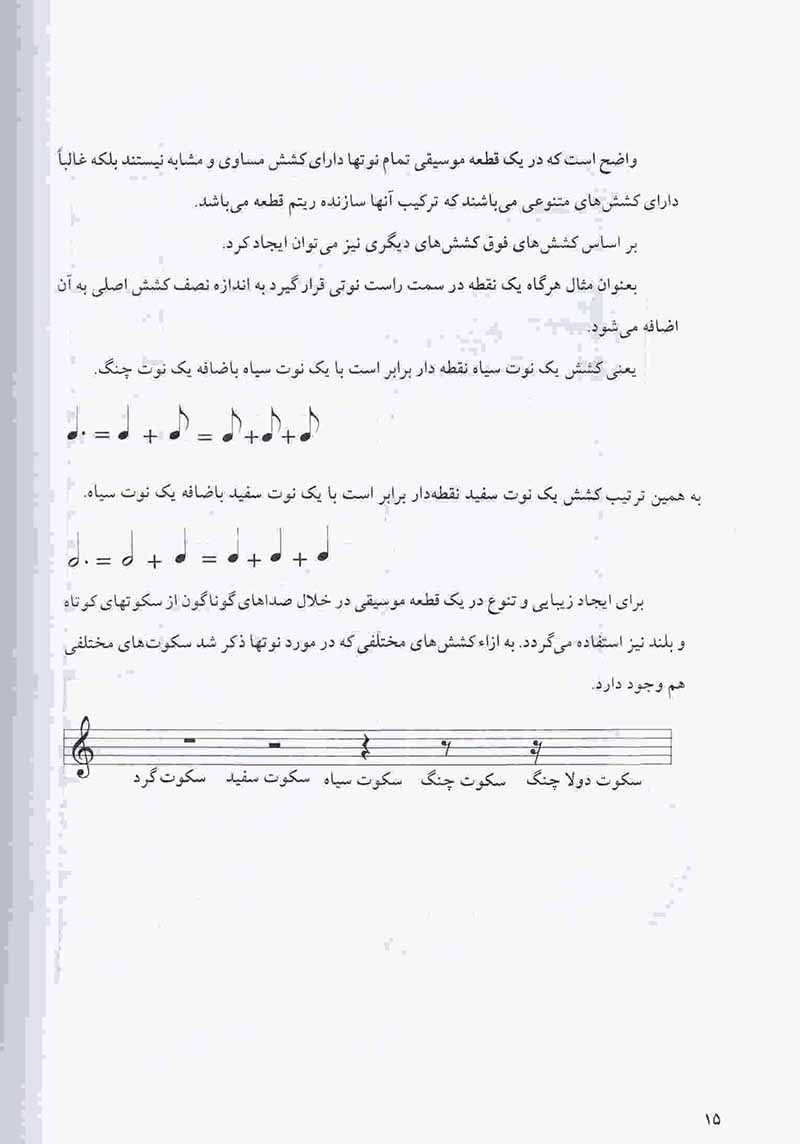 واضح است که در یک قطعه موسیقی تمام نوتها دارای کشش مساوی و مشابه نیستند بلکه غالباً
دارای کشش‌های متنوعی می‌باشند که ترکیب آنها سازنده ریتم قطعه می‌باشد.
بر اساس کشش‌های فوق کشش‌های دیگری نیز می‌توان ایجاد کرد.
بعنوان مثال هرگاه یک نقطه در سمت راست نوتی قرار گیرد به اندازه نصف کشش اصلی به آن
اضافه می‌شود.
یعنی کشش یک نوت سیاه نقطه دار برابر است با یک نوت سیاه باضافه یک نوت چنگ.
به همین ترتیب کشش یک نوت سفید نقطه‌دار برابر است با یک نوت سفید باضافه یک نوت سیاه.
برای ایجاد زیبایی و تنوع در یک قطعه موسیقی در خلال صداهای گوناگون از سکوتهای کوتاه
و بلند نیز استفاده می‌گردد. به ازاء کشش‌های مختلفی که در مورد نوتها ذکر شد سکوت‌های مختلفی
هم وجود دارد.
سکوت گرد سکوت سفید سکوت سیاه سکوت چنگ سکوت دولا چنگ
۱۵